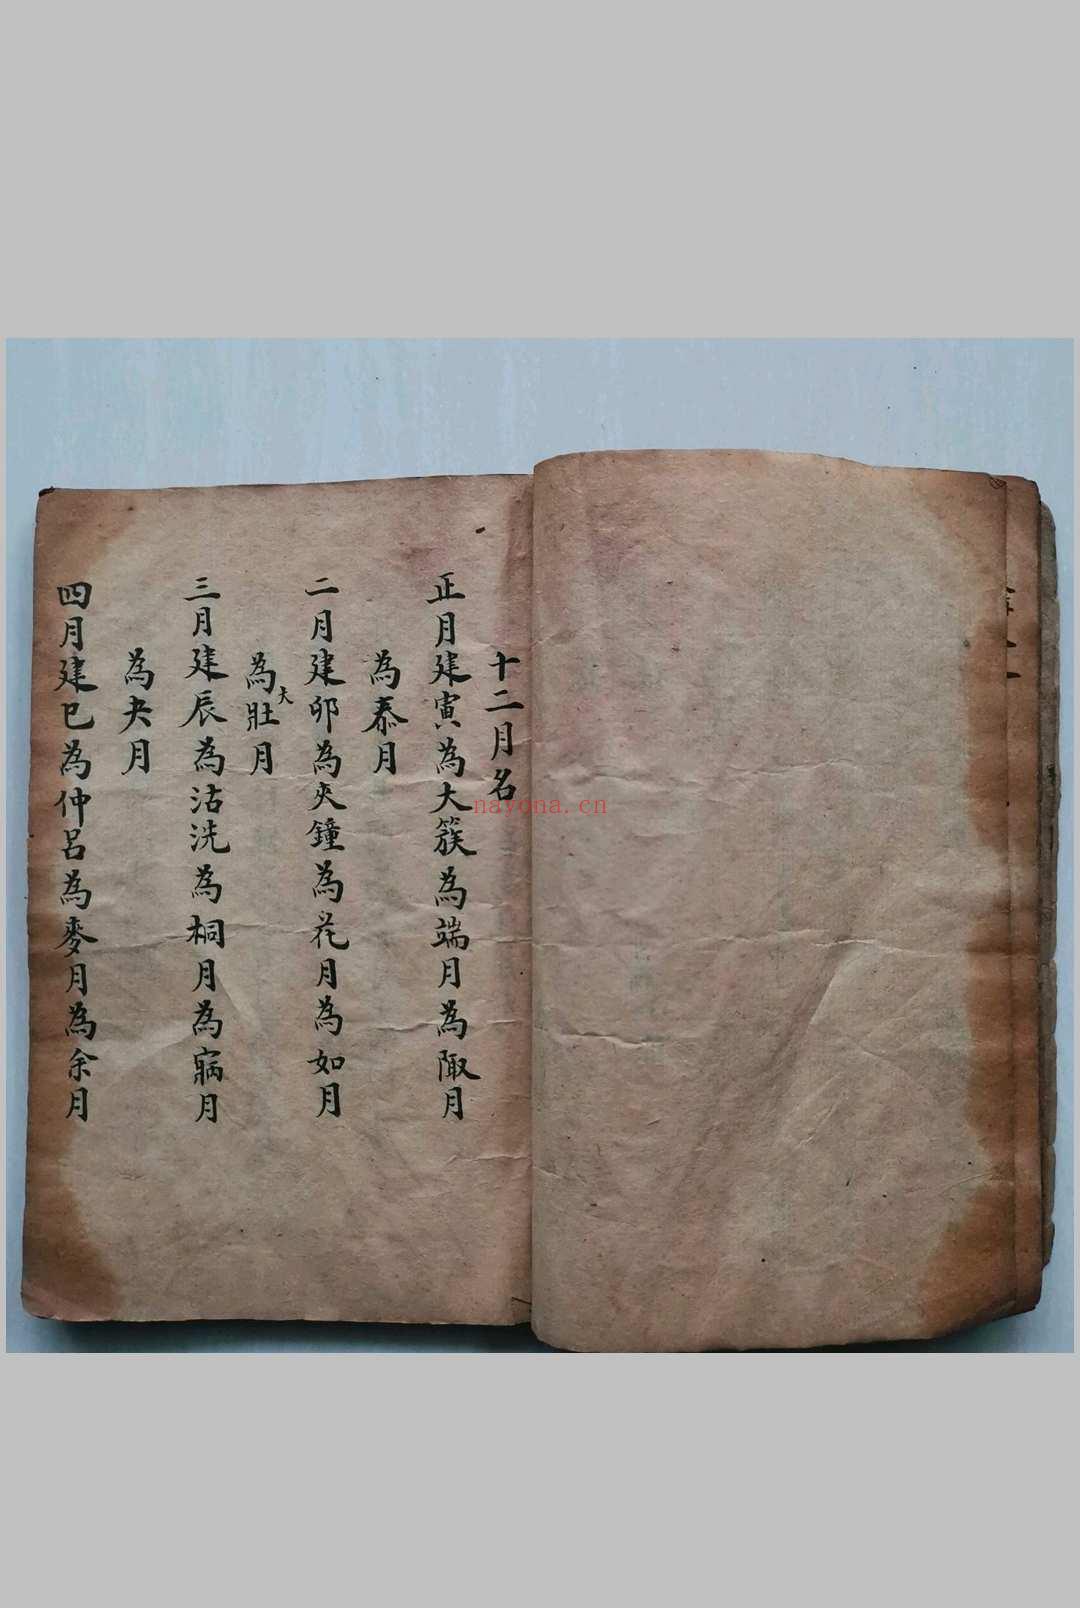 十二月名
正月建寅為大簇為端月為陬月
為泰月
二月建卯為夾鐘為花月為如月
為大壯月
三月建辰為沽洗為桐月為寎月
為夬月
四月建巳為仲呂為麥月為余月
nayona.cn